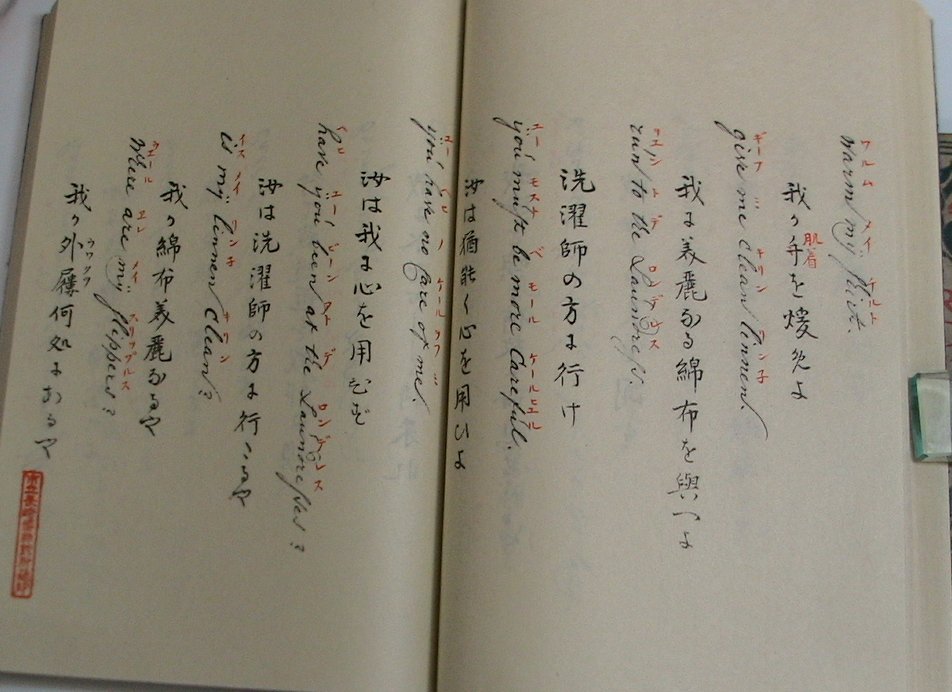 ワルム メイ ケルト
warm my shirt.
我か手を煖めよ
肌着
ギーフ ミ キリン リン子
give me clean linnen.
我に美麗なる綿布を與へよ
run to the Laundress.
洗濯師の方に行け
ユー モスナ ベ モール ケールヒユル
you must be more Careful.
汝は猶能く心を用ひよ
ユー ヘヒ ノ ケール ヲフ ミ
you have no Care of me.
汝は我に心を用ひず
ヘヒ ユー ビーン アト デ ロンデレス
have you been at the Laundresses?
汝は洗濯師の方に行たるや
イス メイ リン子 キリン
is my linnen Clean?
我か綿布美麗なるや
ウェール エレ メイ スリップルス
where are my slippers?
我か外屨何処におるや
ウワクツ